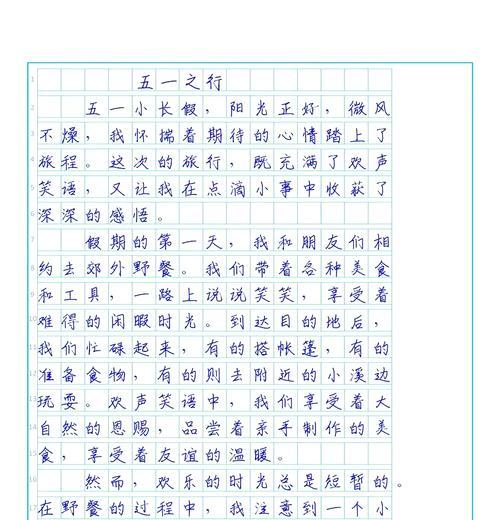 1 五一之行
2 五一小长假，阳光正好，微风
3 不燥，我怀揣着期待的心情踏上了
4 旅程。这次的旅行，既充满了欢声
5 笑语，又让我在点滴小事中收获了
6 深深的感悟。
7 假期的第一天，我和朋友们相
8 约去郊外野餐。我们带着各种美食
9 和工具，一路上说说笑笑，享受着
10 难得的闲暇时光。到达目的地后，
11 我们忙碌起来，有的搭帐篷，有的
12 准备食物，有的则去附近的小溪边
13 玩耍。欢声笑语中，我们享受着大
14 自然的恩赐，品尝着亲手制作的美
15 食，享受着友谊的温暖。
16 然而，欢乐的时光总是短暂的。
17 在野餐的过程中，我注意到一个小